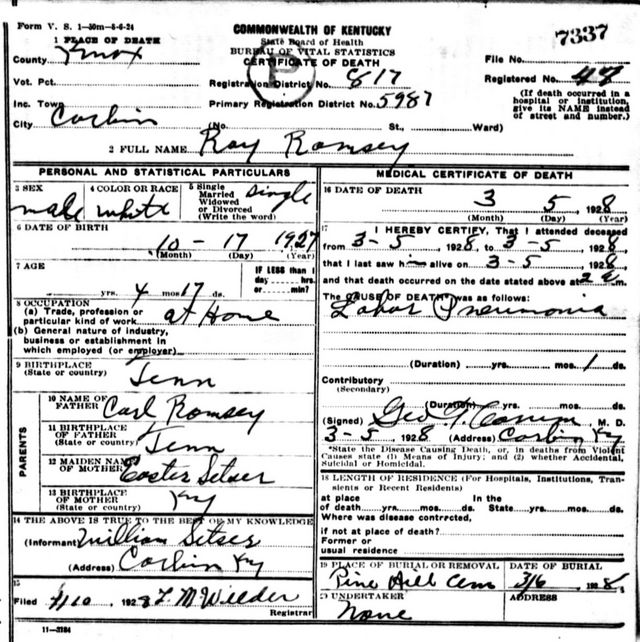 Form V. S. 1-50m-8-6-24
COMMONWEALTH OF KENTUCKY
State Board of Health
BUREAU OF VITAL STATISTICS
CERTIFICATE OF DEATH
7337
1 PLACE OF DEATH
County Knox
File No.
Vot. Pct.
Registration District No. 817
Registered No. 47
Inc. Town
Primary Registration District No. 5987
(If death occurred in a hospital or institution, give its NAME instead of street and number.)
City Corbin (No. St., Ward)
2 FULL NAME Ray Ramsey
PERSONAL AND STATISTICAL PARTICULARS
3 SEX male
4 COLOR OR RACE white
5 Single Married Widowed or Divorced (Write the word) Single
6 DATE OF BIRTH
10 - 17 1927
(Month) (Day) (Year)
7 AGE
yrs. 4 mos 17 ds.
IF LESS than 1 day hrs. or min.?
8 OCCUPATION
(a) Trade, profession or particular kind of work at Home
(b) General nature of industry, business or establishment in which employed (or employer)
9 BIRTHPLACE
(State or country) Tenn
PARENTS
10 NAME OF FATHER Carl Ramsey
11 BIRTHPLACE OF FATHER
(State or country) Tenn
12 MAIDEN NAME OF MOTHER Setser
13 BIRTHPLACE OF MOTHER
(State or country) Ky
14 THE ABOVE IS TRUE TO THE BEST OF MY KNOWLEDGE
(Informant William Setser
(Address) Corbin Ky
15
Filed 1928
Registrar
11-3184
MEDICAL CERTIFICATE OF DEATH
16 DATE OF DEATH
3 5 1928
(Month) (Day) (Year)
17 I HEREBY CERTIFY, That I attended deceased
from 3-5, 1928, to 3-5, 1928,
that I last saw h alive on 3-5, 1928,
and that death occurred on the date stated above at
The CAUSE OF DEATH was as follows:
Lobar Pneumonia
(Duration) yrs. mos. 1 ds.
Contributory
(Secondary)
(Duration) yrs. mos. ds.
(Signed) M. D.
3-5, 1928 (Address) Corbin Ky
*State the Disease Causing Death, or, in deaths from Violent Causes state (1) Means of Injury; and (2) whether Accidental, Suicidal or Homicidal.
18 LENGTH OF RESIDENCE (For Hospitals, Institutions, Transients or Recent Residents)
at place In the
of death yrs. mos. ds. State yrs. mos. ds.
Where was disease contrected,
if not at place of death?
Former or
usual residence
19 PLACE OF BURIAL OR REMOVAL
Pine Hill Cem
DATE OF BURIAL
3/6 1928
20 UNDERTAKER
None
ADDRESS